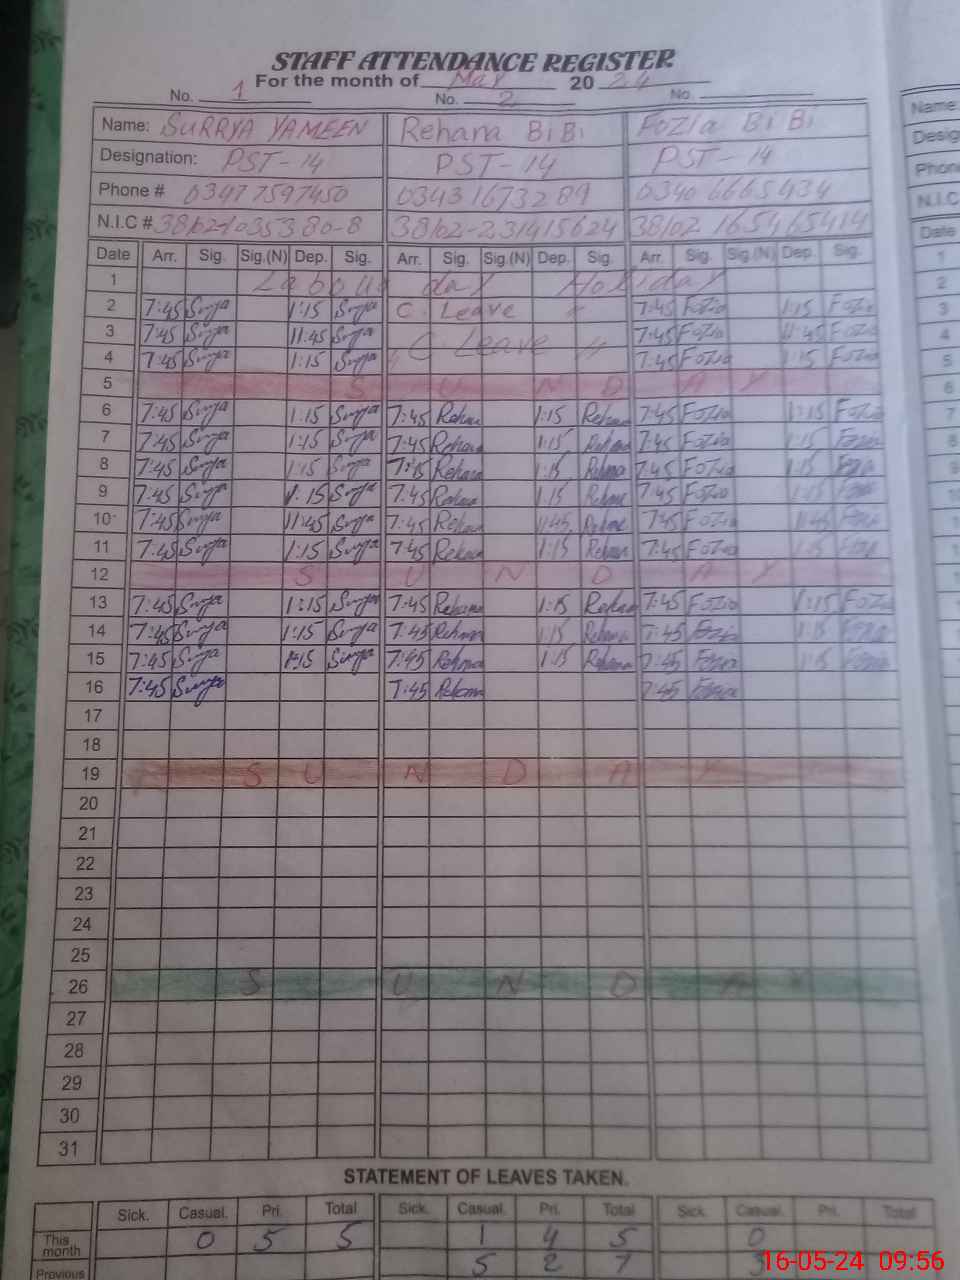 STAFF ATTENDANCE REGISTER
For the month of May 20 24
No. 1 No. 2 No.
Name: SURRYA YAMEEN Rehana BiBi Fozia BiBi
Designation: PST-14 PST-14 PST-14
Phone # 03477597450 03431673289 03406665434
N.I.C # 38102-231415624 38102 165465414
Date Arr. Sig. Sig.(N) Dep. Sig. Arr. Sig. Sig.(N) Dep. Sig. Arr. Sig. Sig.(N) Dep. Sig.
1 Labour day Holiday
2 7:45 Surya 1:15 Surya C. Leave 7:45 Fozia 1:15 Fozia
3 7:45 Surya 11:45 Surya C Leave 7:45 Fozia 11:45 Fozia
4 7:45 Surya 1:15 Surya 7:45 Fozia 1:15 Fozia
5 SUNDAY
6 7:45 Surya 1:15 Surya 7:45 Rehana 1:15 Rehana 7:45 Fozia 1:15 Fozia
7 7:45 Surya 1:15 Surya 7:45 Rehana 1:15 Rehana 7:45 Fozia 1:15 Fozia
8 7:45 Surya 1:15 Surya Rehana 1:15 Rehana 7:45 Fozia 1:15 Fozia
9 7:45 Surya 1:15 Surya 7:45 Rehana 1:15 Rehana 7:45 Fozia 1:15 Fozia
10 7:45 Surya 11:45 Surya 7:45 Rehana 11:45 Rehana 7:45 Fozia 11:45 Fozia
11 7:45 Surya 1:15 Surya 7:45 Rehana 1:15 Rehana 7:45 Fozia 1:15 Fozia
12 SUNDAY
13 7:45 Surya 1:15 Surya 7:45 Rehana 1:15 Rehana 7:45 Fozia 1:15 Fozia
14 7:45 Surya 1:15 Surya 7:45 Rehana 1:15 Rehana 7:45 Fozia 1:15 Fozia
15 7:45 Surya 1:15 Surya 7:45 Rehana 1:15 Rehana 7:45 Fozia 1:15 Fozia
16 7:45 Surya 7:45 Rehana 7:45 Fozia
17
18
19 SUNDAY
20
21
22
23
24
25
26 SUNDAY
27
28
29
30
31
STATEMENT OF LEAVES TAKEN.
Sick. Casual. Pri. Total Sick. Casual. Pri. Total Sick. Casual. Pri. Total
This month 0 5 5 1 4 5 0
Previous 5 2 7
16-05-24 09:56